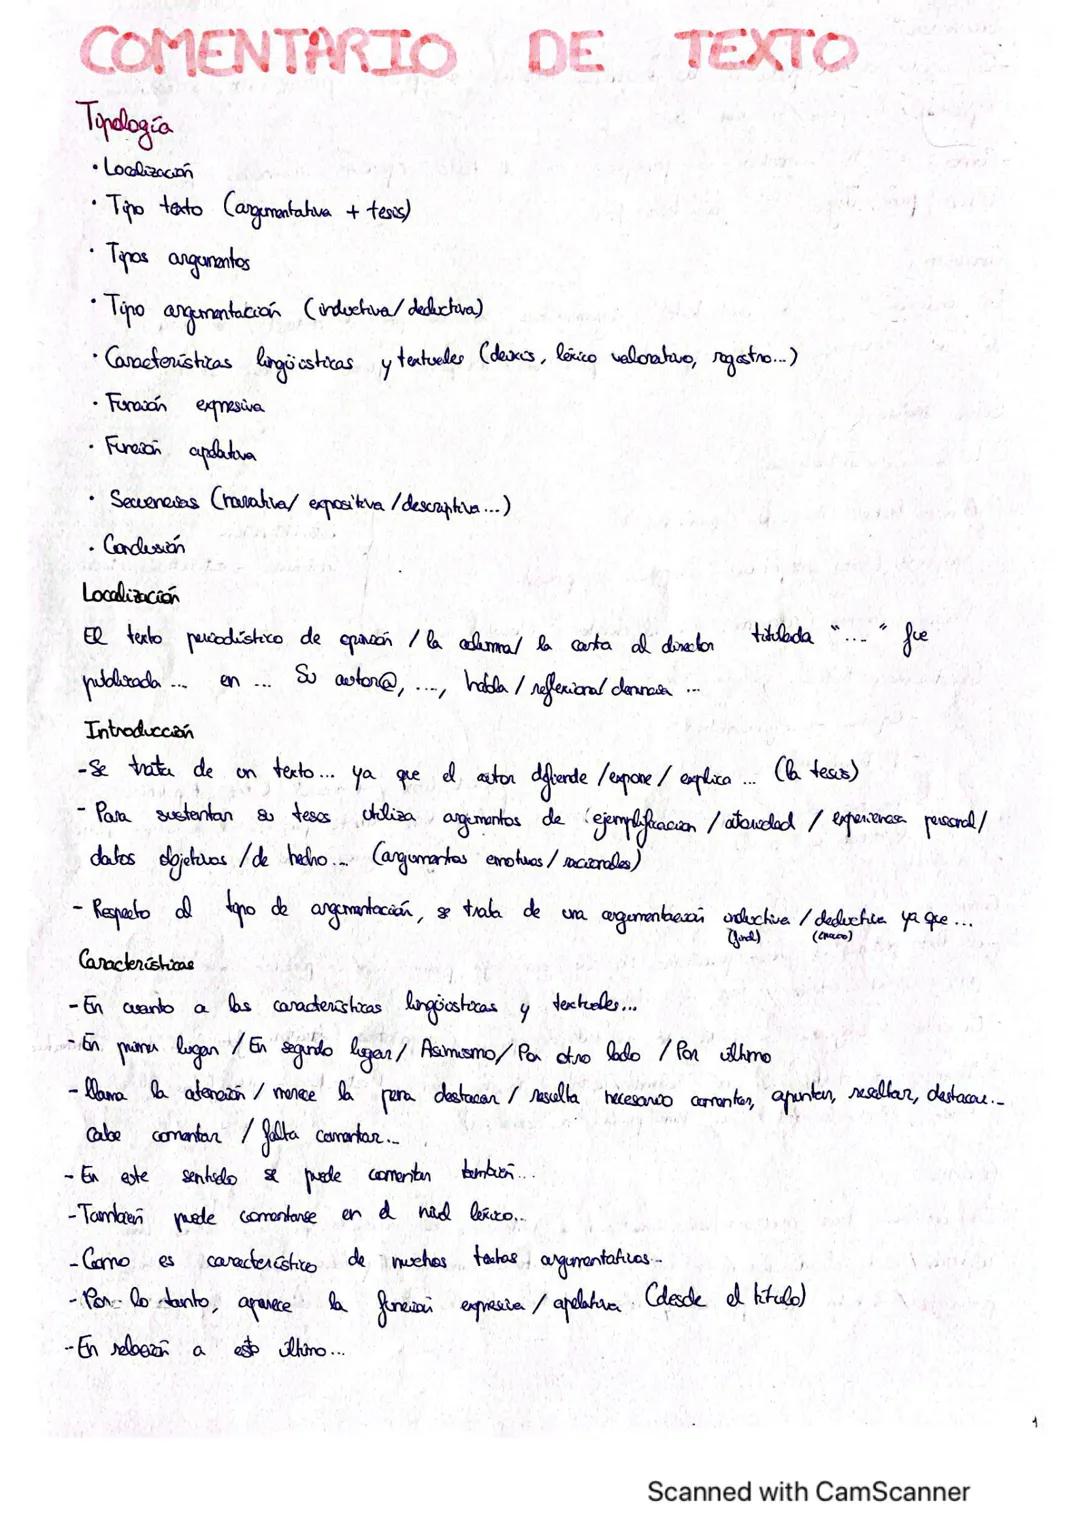 COMENTARIO DE TEXTO
Tipología
· Localización
· Tipo texto (argumentativa + tesis)
· Tipos argumentos
· Tipo argumentación (inductiva/deductiva)
· Características lingüísticas y textuales (deixis, léxico valorativo, registro...)
· Función expresiva
· Función apelativa
· Secuencias (narrativa/ expositiva /descriptiva...)
· Conclusión
Localización
El texto periodístico de opinión / la columna/ la carta al director titulada "..." fue
publicada ... en ... Su autor@, ..., habla / reflexiona/ denuncia ...
Introducción
-Se trata de un texto... ya que el autor defiende /expone/ explica ... (la tesis)
- Para sustentar su tesis utiliza argumentos de ejemplificación / autoridad / experiencia personal/
datos objetivos /de hecho... (argumentos emotivos/ racionales)
- Respecto al tipo de argumentación, se trata de una argumentación inductiva / deductiva ya que ...
(final) (inicio)
Características
-En cuanto a las características lingüísticas y textuales...
-En primer lugar /En segundo lugar/ Asimismo/ Por otro lado /Por último
- llama la atención / merece la pena destacar / resulta necesario comentar, apuntar, resaltar, destacar...
Cabe comentar / falta comentar...
- En este sentido se puede comentar también...
-También puede comentarse en el nivel léxico...
-Como es característico de muchos textos argumentativos...
-Por lo tanto, aparece la función expresiva / apelativa (desde el título)
-En relación a esto último...
1
Scanned with CamScanner